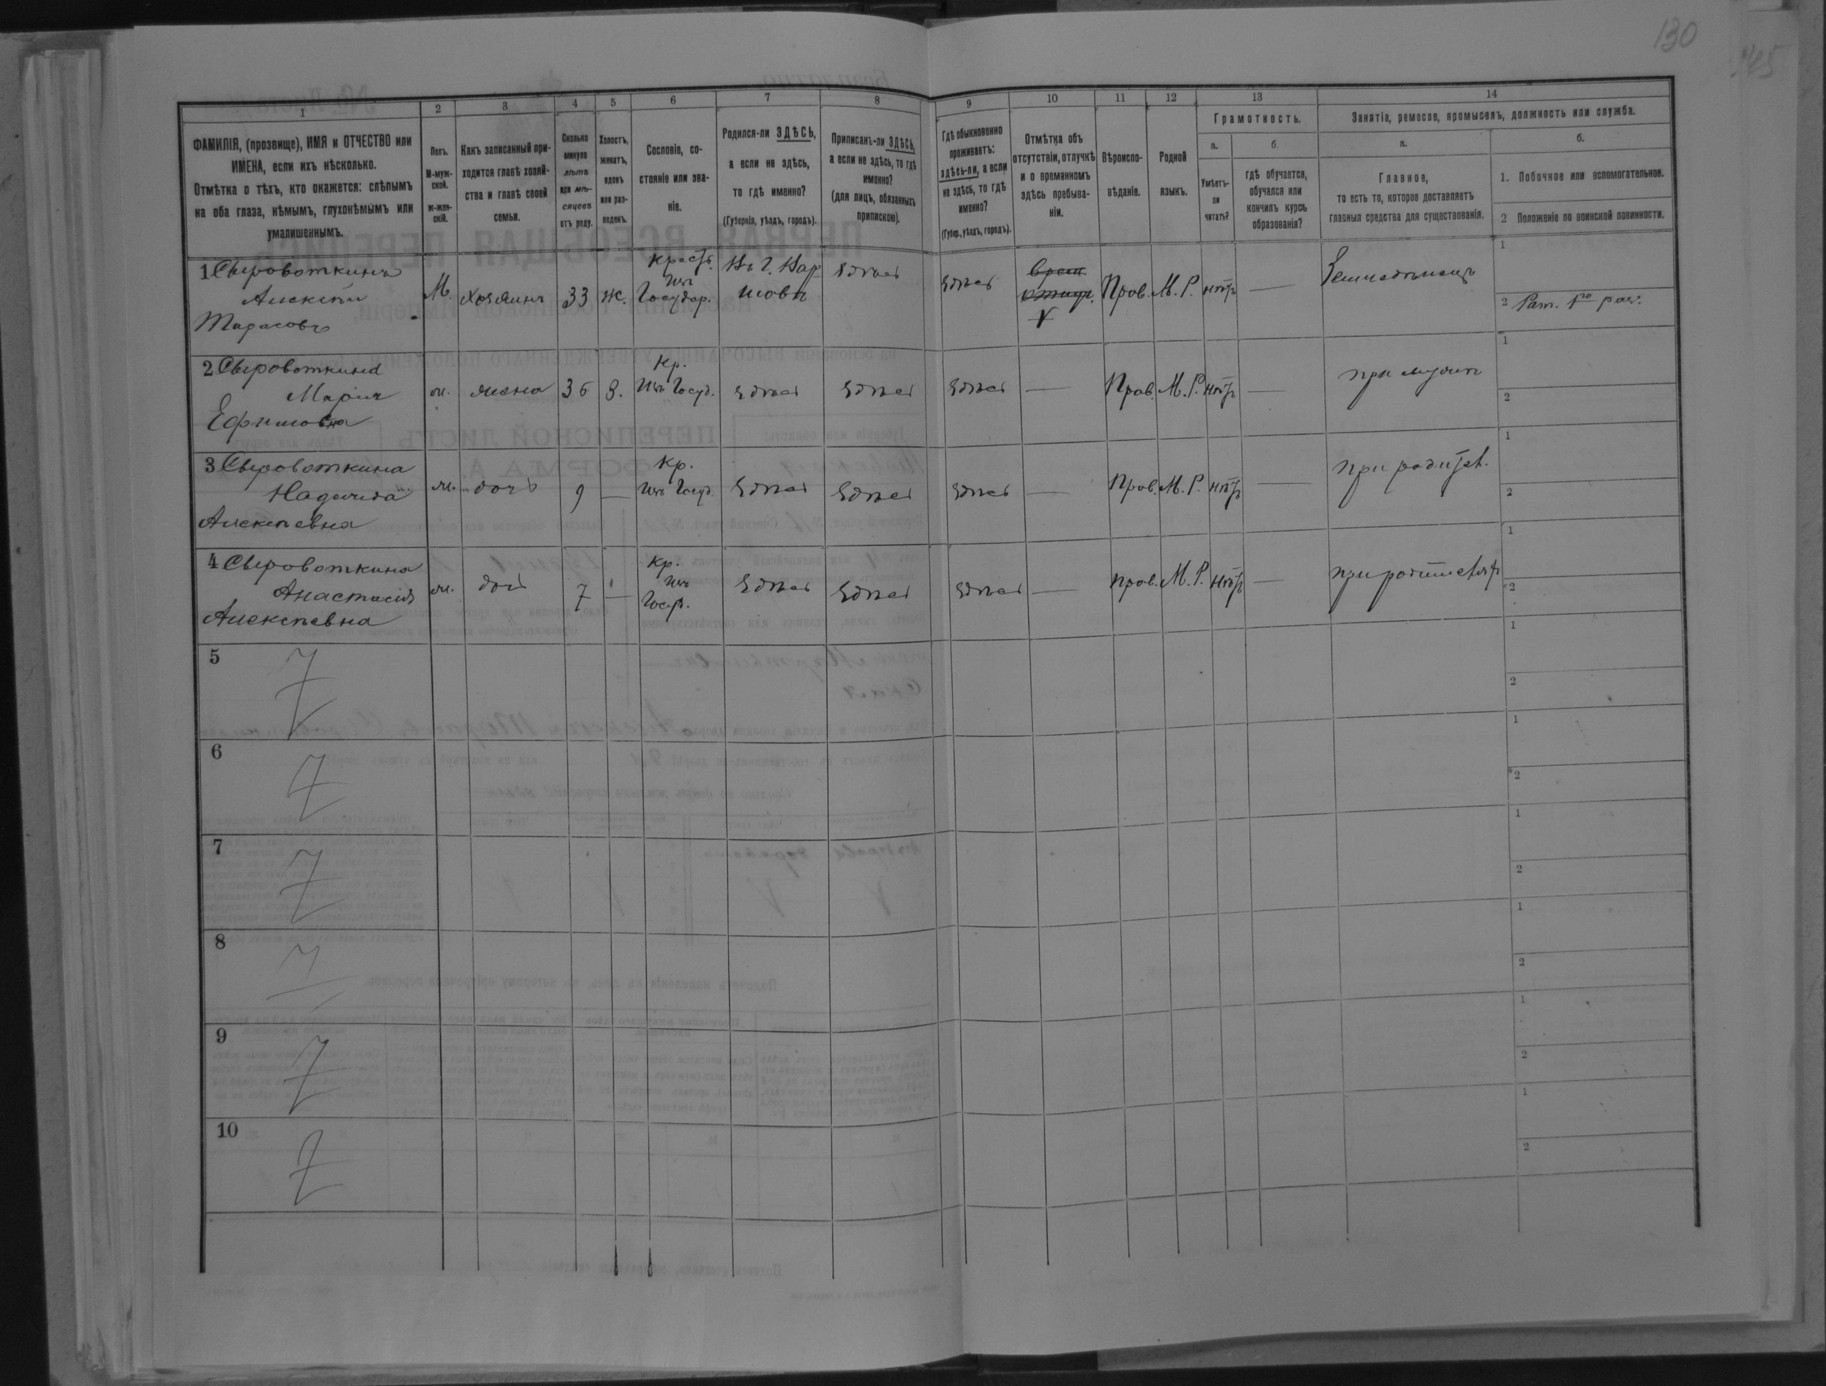 130
1
2
3
4
5
6
7
8
9
10
11
12
13
14
ФАМИЛІЯ, (прозвище), ИМЯ и ОТЧЕСТВО или
ИМЕНА, если ихъ нѣсколько.
Отмѣтка о тѣхъ, кто окажется: слѣпымъ
на оба глаза, нѣмымъ, глухонѣмымъ или
умалишеннымъ.
Полъ.
М-муж-
ской.
ж-жен-
скій.
Какъ записанный при-
ходится главѣ хозяй-
ства и главѣ своей
семьи.
Сколько
минуло
лѣтъ
или мѣ-
сяцевъ
отъ роду.
Холостъ,
женатъ,
вдовъ
или раз-
веденъ.
Сословіе, со-
стояніе или зва-
ніе.
Родился-ли ЗДѢСЬ,
а если не здѣсь,
то гдѣ именно?
(Губернія, уѣздъ, городъ).
Приписанъ-ли ЗДѢСЬ,
а если не здѣсь, то гдѣ
именно?
(для лицъ, обязанныхъ
припискою).
Гдѣ обыкновенно
проживаетъ:
здѣсь-ли, а если
не здѣсь, то гдѣ
именно?
(Губер., уѣздъ, городъ).
Отмѣтка объ
отсутствіи, отлучкѣ
и о временномъ
здѣсь пребыва-
ніи.
Вѣроиспо-
вѣданіе.
Родной
языкъ.
Грамотность.
а.
Умѣетъ-
ли
читать?
б.
гдѣ обучается,
обучался или
кончилъ курсъ
образованія?
Занятіе, ремесло, промыселъ, должность или служба.
а.
Главное,
то есть то, которое доставляетъ
главныя средства для существованія.
б.
1. Побочное или вспомогательное.
2 Положеніе по воинской повинности.
1 Сыровоткинъ
Алексѣй
Тарасовъ
М. хозяинъ 33 ж.
Крест.
изъ
Государ.
здѣсь здѣсь
Пров. М. Р. нѣтъ —
Земледѣлецъ
1
2 Рат. 1го раз.
2 Сыровоткина
Марія
Ефимовна
ж. жена 36 З.
Кр.
изъ Госуд.
здѣсь здѣсь здѣсь — Пров. М. Р. нѣтъ —
при мужѣ
1
2
3 Сыровоткина
Надежда
Алексѣевна
ж. дочь 9 —
Кр.
изъ Госуд.
здѣсь здѣсь здѣсь — Пров. М. Р. нѣтъ —
при родител.
1
2
4 Сыровоткина
Анастасія
Алексѣевна
ж. дочь 7 —
Кр.
изъ
Госуд.
здѣсь здѣсь здѣсь — Пров. М. Р. нѣтъ —
при родителяхъ
1
2
5
1
2
6
1
2
7
1
2
8
1
2
9
1
2
10
1
2